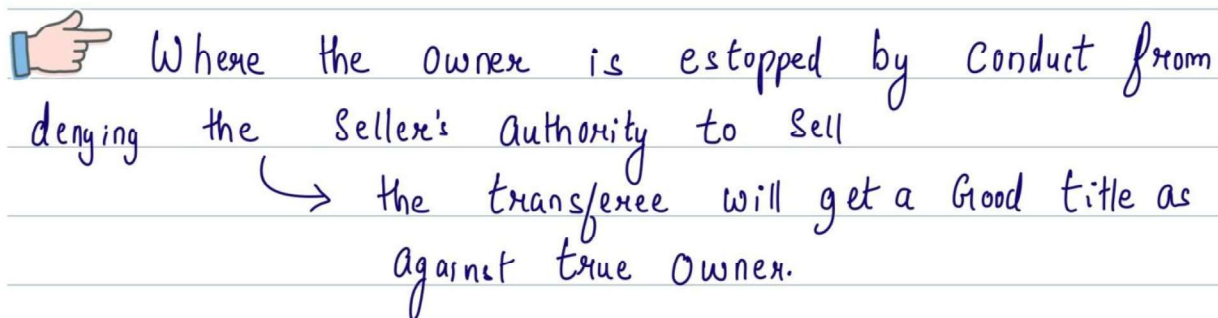 Where the owner is estopped by conduct from
denying the Seller's authority to Sell
the transferee will get a Good title as
against true owner.